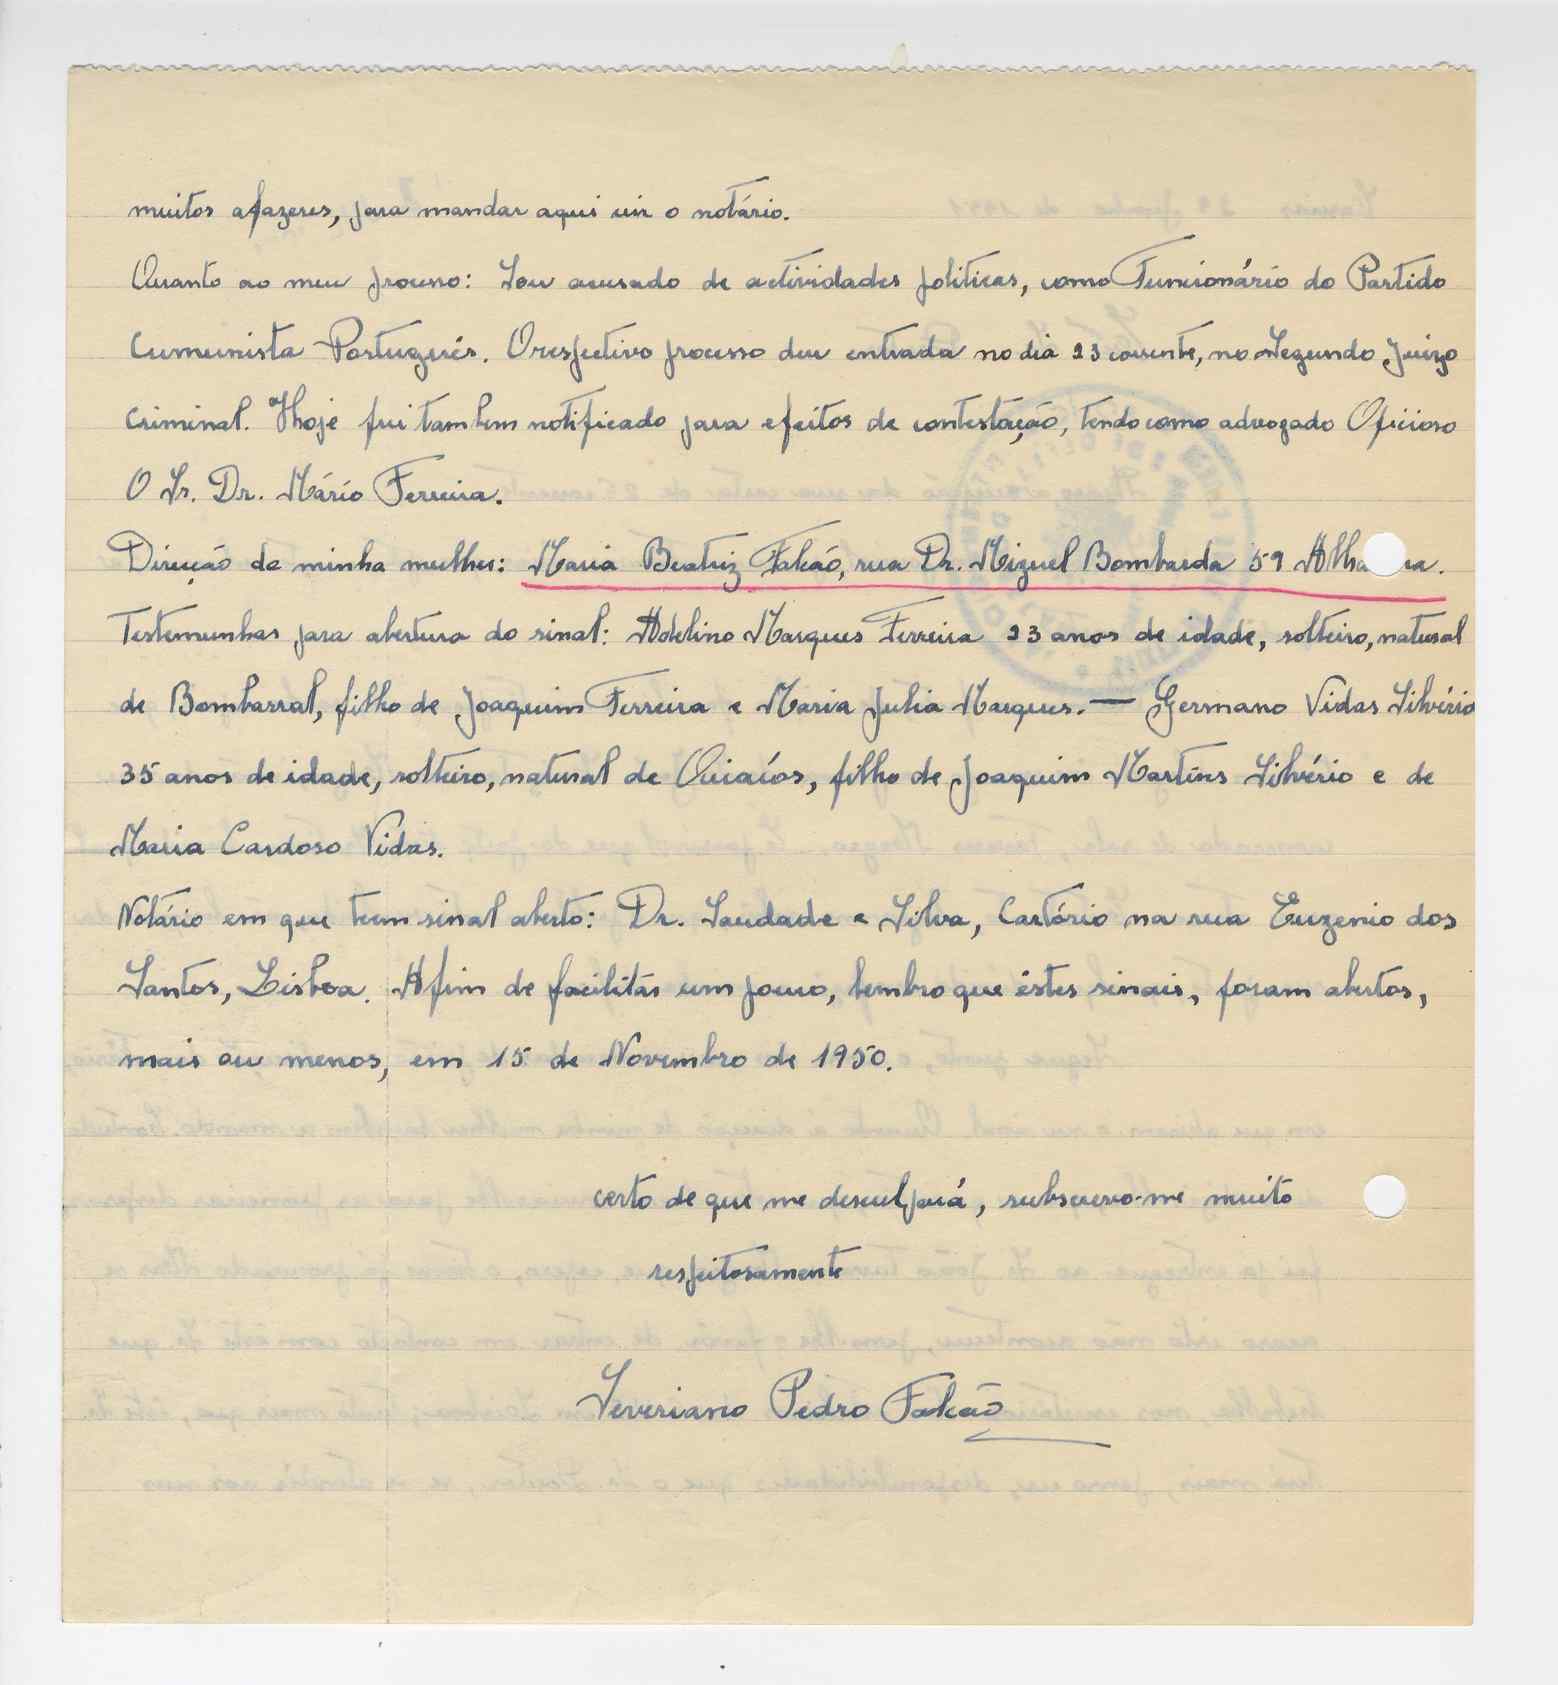 muitos afazeres, para mandar aqui vir o notário.
Quanto ao meu processo: Sou acusado de actividades politicas, como Funcionário do Partido
Cumunista Português. O respectivo processo deu entrada no dia 23 corrente, no Segundo Juizo
Criminal. Hoje fui tambem notificado para efeitos de contestação, tendo como advogado Oficioso
O Sr. Dr. Mário Ferreira.
Direcção de minha mulher: Maria Beatriz Falcão, rua Dr. Miguel Bombarda 59 Alha ra.
Testemunhas para abertura do sinal: Adelino Marques Ferreira 23 anos de idade, solteiro, natural
de Bombarral, filho de Joaquim Ferreira e Maria Julia Marques. — Germano Vidas Silvério
35 anos de idade, solteiro, natural de Quiaíos, filho de Joaquim Martins Silvério e de
Maria Cardoso Vidas.
Notário em que teem sinal aberto: Dr. Saudade e Silva, Cartório na rua Euzenio dos
Santos, Lisboa. Afim de facilitar um pouco, lembro que êstes sinais, foram abertos,
mais ou menos, em 15 de Novembro de 1950.
certo de que me desculpará, subscrevo-me muito
respeitosamente
Severiano Pedro Falcão